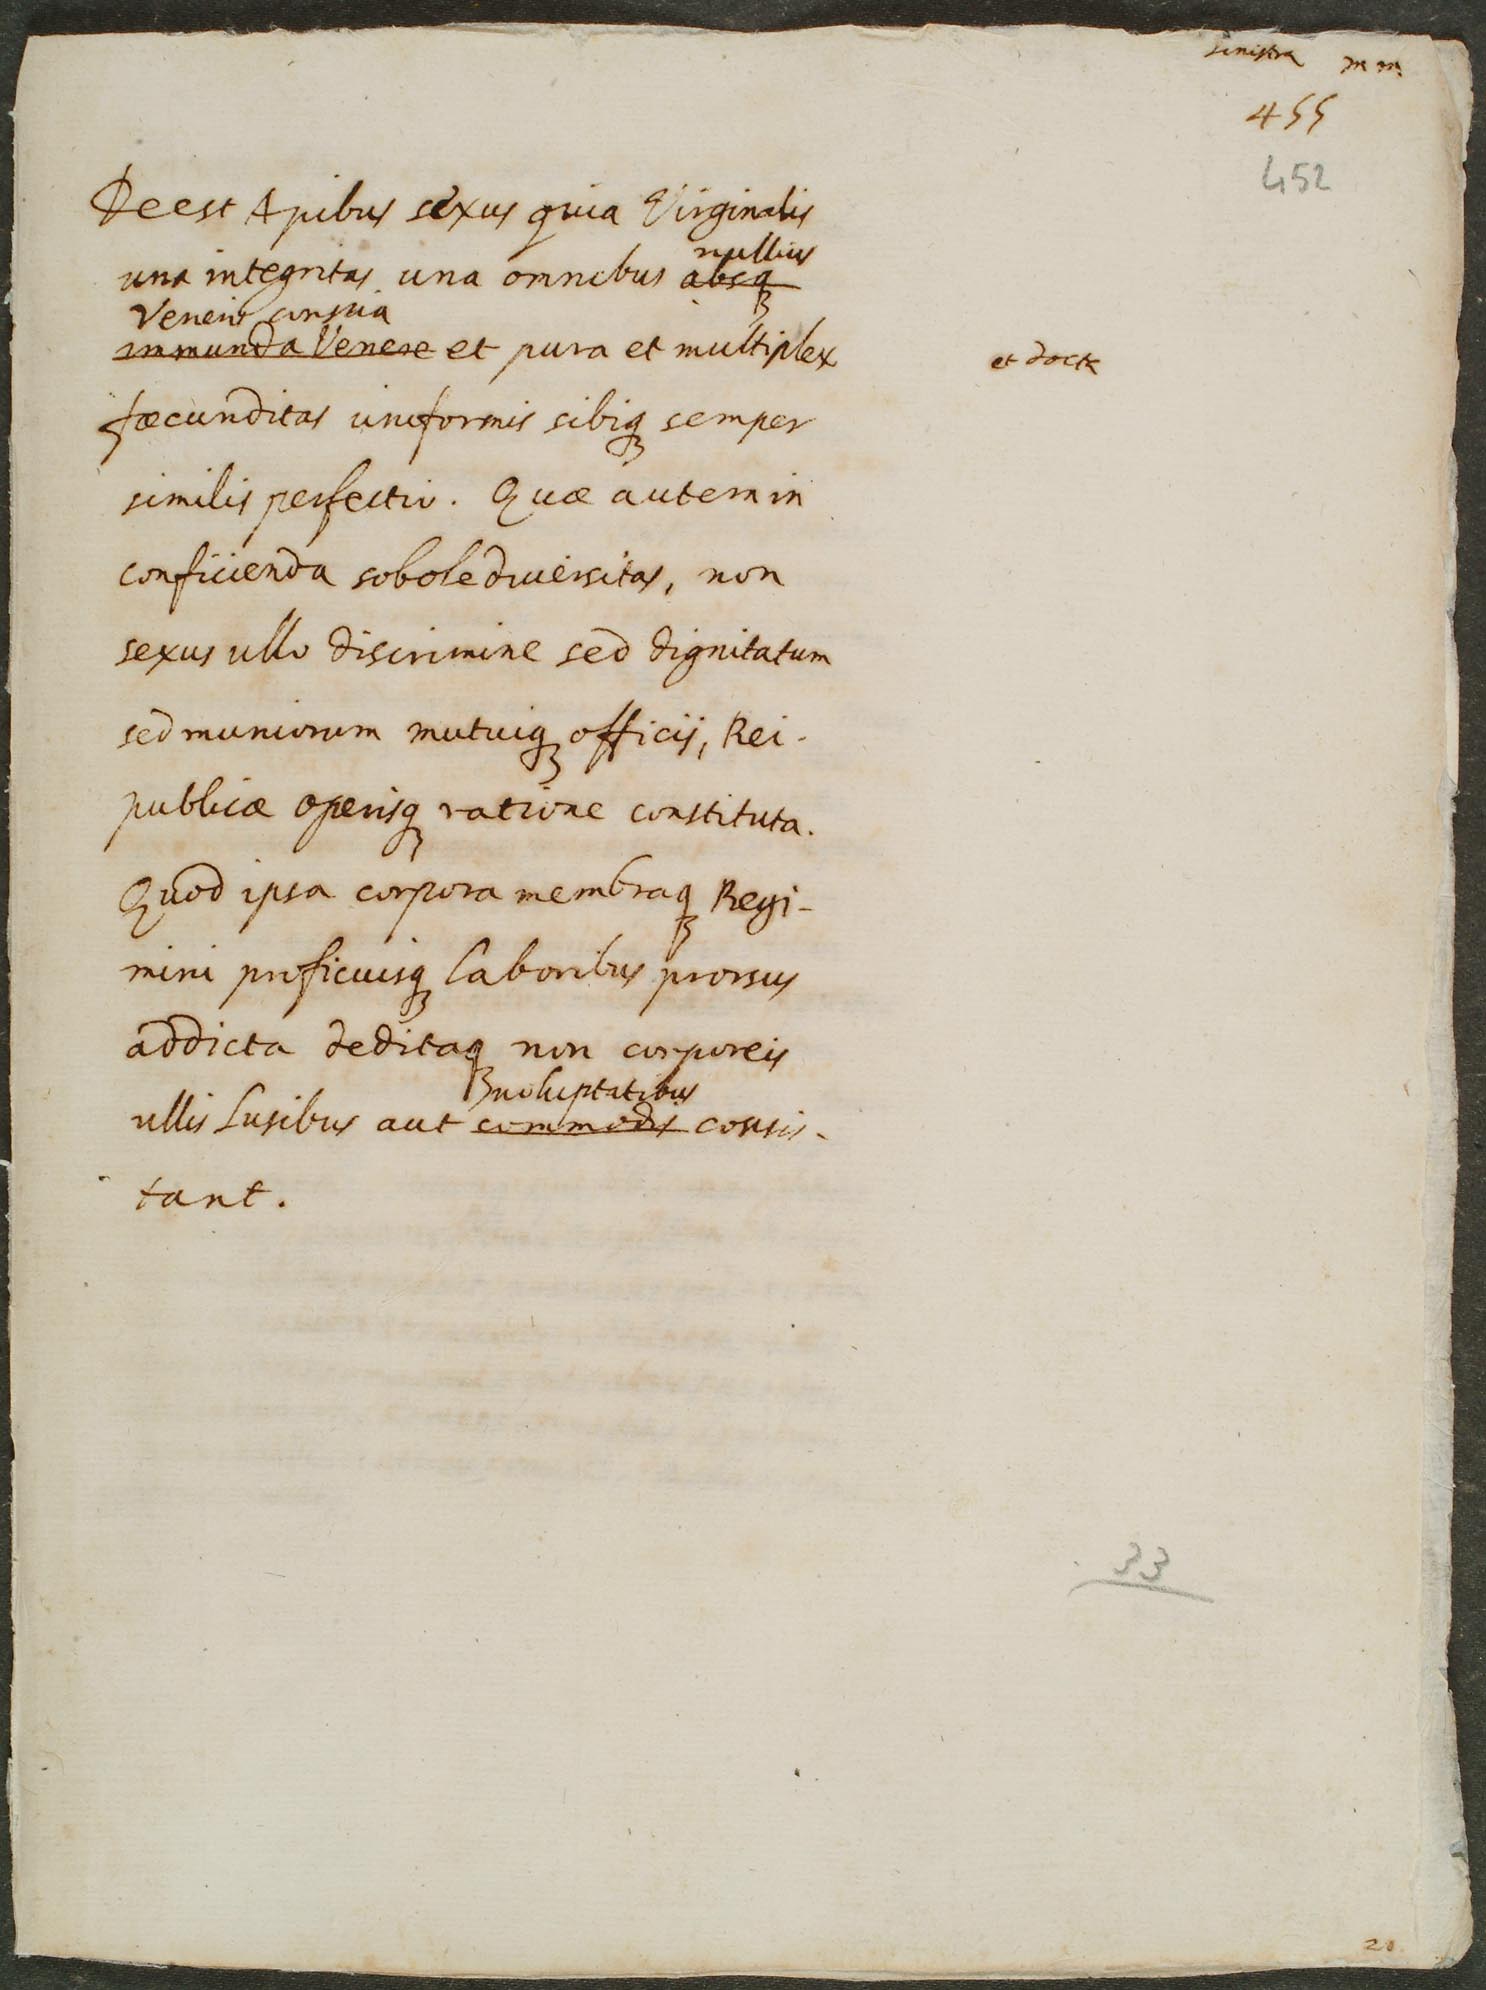 sinistra m m
455
452
Deest Apibus sexus quia Virginalis
nullius
una integritas una omnibus absq
Veneris conscia
immunda Venere et pura et multiplex
et docta
fœcunditas uniformis sibiq semper
similis perfectio. Quæ autem in
conficienda sobole diversitas, non
sexus ullo discrimine sed dignitatum
sed muniorum mutuiq officij, Rei-
publicæ operisq ratione constituta.
Quod ipsa corpora membraq Regi-
mini proficuisq laboribus prorsus
addicta deditaq non corporeis
voluptatibus
ullis lusibus aut commodis consis-
tant.
33
20